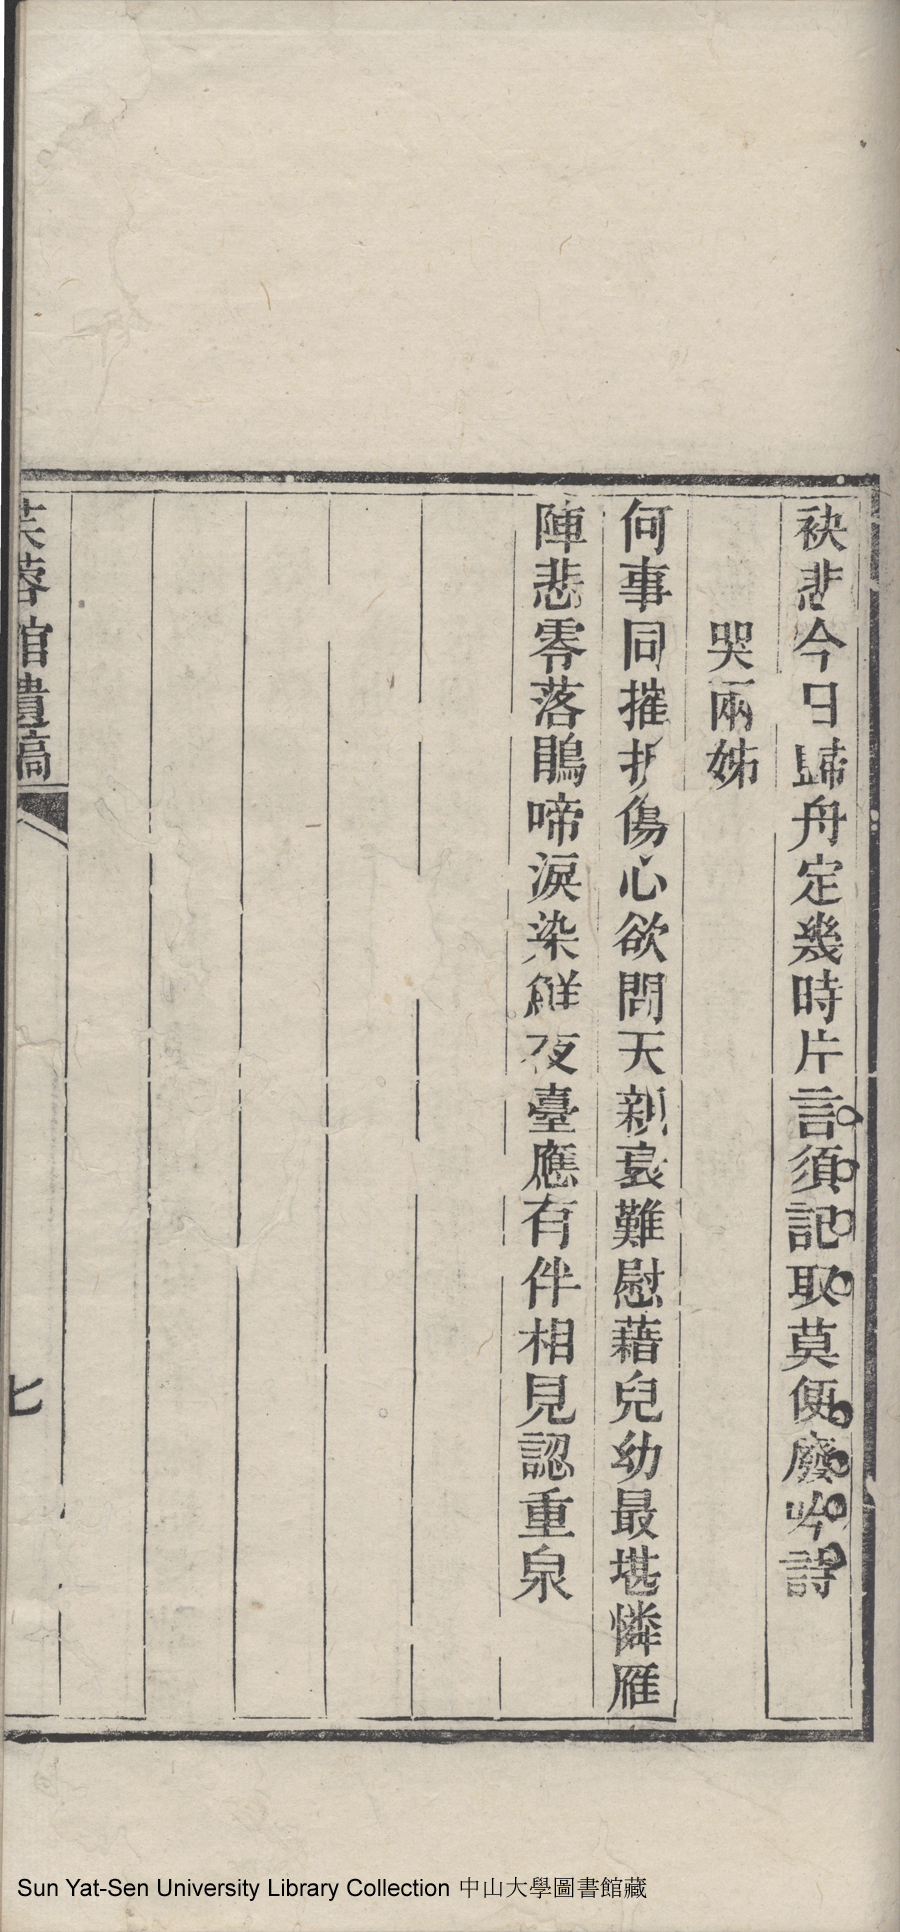 袂悲今日歸舟定幾時片言須記取莫便廢吟詩
哭兩姊
何事同摧折傷心欲問天親衰難慰藉兒幼最堪憐雁
陣悲零落鵑啼淚染鮮夜臺應有伴相見認重泉
芙蓉館遺稿
七
Sun Yat-Sen University Library Collection 中山大學圖書館藏